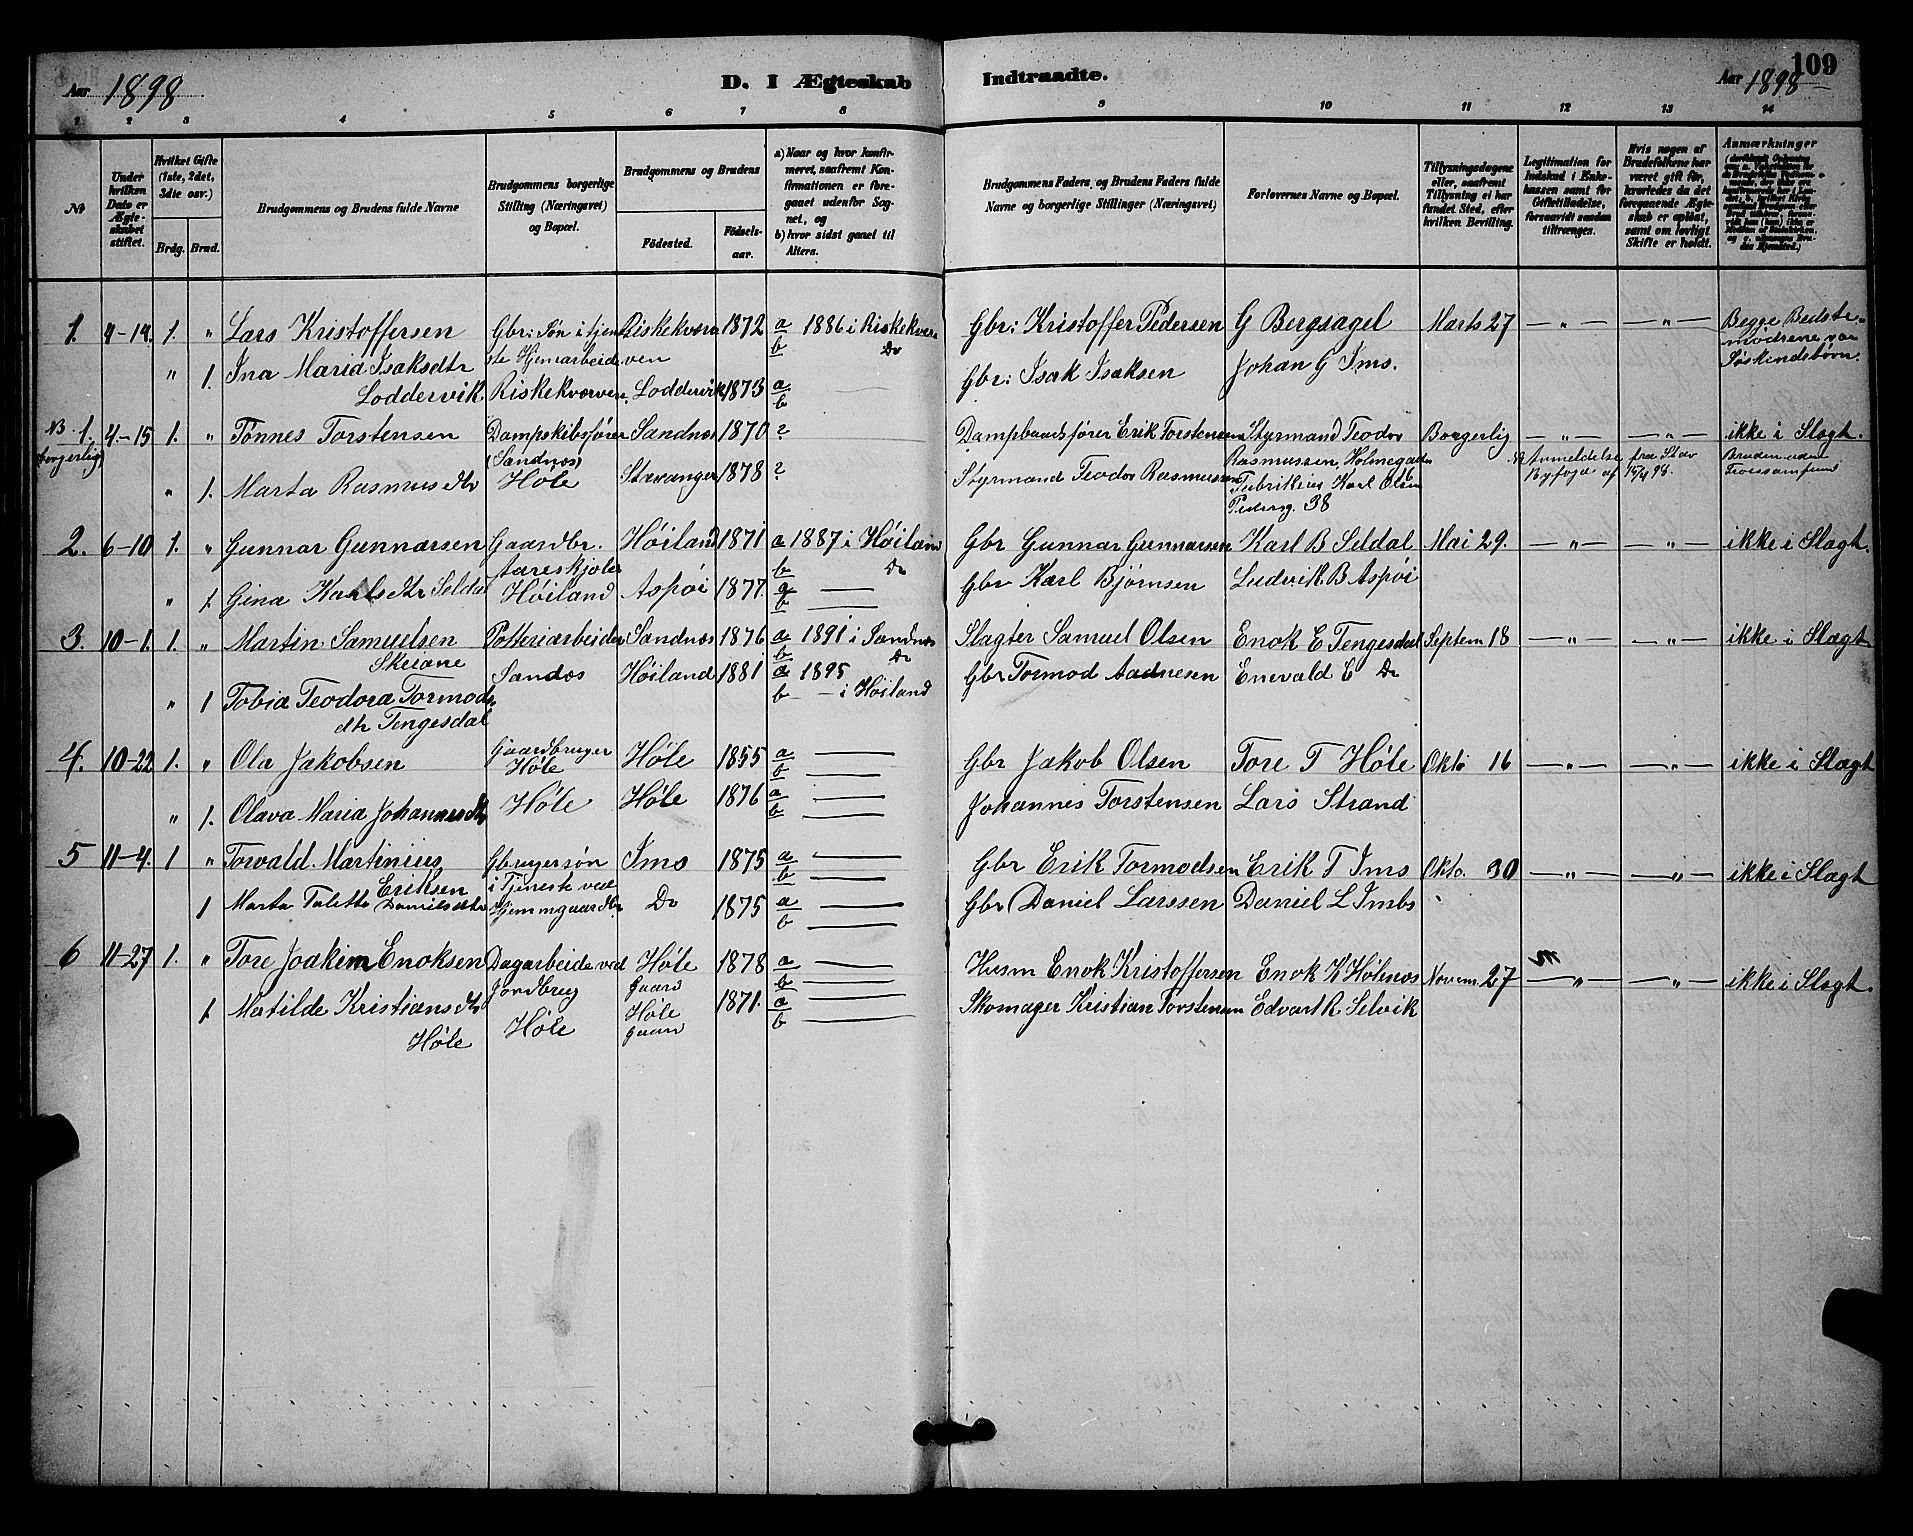 Aar 1898
D. I Ægteskab Indtraadte.
Aar 1898
109
1 2 3 4 5 6 7 8 9 10 11 12 13 14
№
Under hvilken Dato er Ægteskabet stiftet.
Hvilket Gifte (1ste, 2det, 3die osv.)
Brdg. Brud.
Brudgommens og Brudens fulde Navne
Brudgommens borgerlige Stilling (Næringsvei) og Bopæl.
Brudgommens og Brudens
Födested. Födselsaar.
a) Naar og hvor konfirmeret, saafremt Konfirmationen er foregaaet udenfor Sognet, og
b) hvor sidst gaaet til Alters.
Brudgommens Faders, og Brudens Faders fulde Navne og borgerlige Stillinger (Næringsvei)
Forlovernes Navne og Bopæl.
Tillysningsdagene eller, saafremt Tillysning ei har fundet Sted, efter hvilken Bevilling.
Legitimation for Indskud i Enkekassen samt for Giftetilladelse, forsaavidt saadan tiltrænges.
Hvis nogen af Brudefolkene har været gift før, hvorledes da det foregaaende Ægteskab er oplöst, samt om lovligt Skifte er holdt.
Anmærkninger
1. 4-14. 1. " Lars Kristoffersen Gbr: Søn i tjen Riskekværn 1872 a 1886 i Riskekværn Gbr: Kristoffer Pedersen G Bergsagel Marts 27 — " — — " — Begge Bedste
ste Hjemarbeide ven b Do modrene var
" 1. Ina Maria Isaksdtr Riskekværven. Loddervik 1873 a — Gbr: Isak Isaksen Johan G Ims. Søskindebørn.
Loddervik b
NB 1. 4-15 1. " Tønnes Torstensen Dampskibsfører Sandnæs 1870 ? — Dampbaadsfører Erik Torstensen Styrmand Teodor Borgerlig — " — — " — ikke i Slægt.
borgerlig) (Sandnæs) Rasmussen, Holmegaden NB Anmeldelse fra Stav Bruden uden
" 1. Marta Rasmusdtr Høle Stavanger 1878 ? Styrmand Teodor Rasmussen Fabrikeier Karl Olsen Byfoged af 15/4 98. Troessamfund
Pedersg. 38
2. 6-10 1. " Gunnar Gunnarsen Gaardbr. Høiland 1871 a 1887 i Høiland Gbr Gunnar Gunnarsen Karl B Seldal Mai 29. — " — — " — ikke i Slægt.
b Do
" 1. Gina Karlsdtr Seldal Høiland Aspøi 1877. a — Gbr Karl Bjørnsen Ludvik B Aspøi
b —
3. 10-1. 1. " Martin Samuelsen Potteriarbeider Sandnæs 1876 a 1891 i Sandnæs Slagter Samuel Olsen Enok E Tengesdal Septem 18 — " — — " — ikke i Slægt
Skeiane b Do
Sandæs Høiland 1881 a 1895 Gbr Tormod Aadnesen Enevald E Do
" 1 Tobia Teodora Tormods b — i Høiland
dtr Tengesdal
4. 10-22 1. " Ola Jakobsen Gaardbruger Høle 1855 a — Gbr Jakob Olsen Tore T Høle Okto 16 — " — — " — ikke i Slægt
Høle b —
" 1. Olava Maria Johannesdtr Høle Høle 1876 a — Johannes Torstensen Lars Strand
b —
5 11-4. 1 " Torvald Martinius Gbrugersøn Ims 1875 a — Gbr Erik Tormodsen Erik T Ims Okto. 30 — " — — " — ikke i Slægt
Eriksen i Tjeneste ved b —
1 Marta Talette Danielsdtr Hjemmgaardbr Do 1875 a — Gbr Daniel Larssen Daniel L Imbs
b —
6 11-27 1. " Tore Joakim Enoksen Dagarbeide ved Høle 1878 a — Husm Enok Kristoffersen Enok K Hølenæs Novem. 27 — " — — " — ikke i Slægt.
Jordbrug gaard b —
1. Matilde Kristiansdtr Høle Høle 1871. a — Skomager Kristian Torstensen Edvart R Selvik
Høle gaard b —